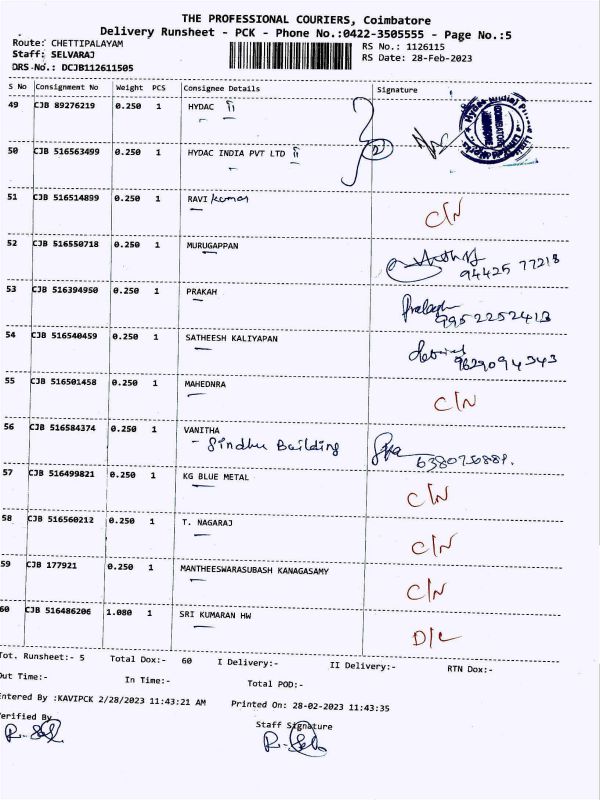 THE PROFESSIONAL COURIERS, Coimbatore
Delivery Runsheet - PCK - Phone No.:0422-3505555 - Page No.:5
Route: CHETTIPALAYAM RS No.: 1126115
Staff: SELVARAJ RS Date: 28-Feb-2023
DRS No.: DCJB112611505
S No Consignment No Weight PCS Consignee Details Signature
49 CJB 89276219 0.250 1 HYDAC
50 CJB 516563499 0.250 1 HYDAC INDIA PVT LTD
51 CJB 516514899 0.250 1 RAVI kumar C/N
52 CJB 516550718 0.250 1 MURUGAPPAN 94425 77218
53 CJB 516394950 0.250 1 PRAKAH 9952252413
54 CJB 516540459 0.250 1 SATHEESH KALIYAPAN
55 CJB 516501458 0.250 1 MAHEDNRA C/N
56 CJB 516584374 0.250 1 VANITHA
- Sindhu Building
57 CJB 516499821 0.250 1 KG BLUE METAL C/N
58 CJB 516560212 0.250 1 T. NAGARAJ C/N
59 CJB 177921 0.250 1 MANTHEESWARASUBASH KANAGASAMY C/N
60 CJB 516486206 1.080 1 SRI KUMARAN HW D/L
Tot. Runsheet:- 5 Total Dox:- 60 I Delivery:- II Delivery:- RTN Dox:-
Out Time:- In Time:- Total POD:-
Entered By :KAVIPCK 2/28/2023 11:43:21 AM Printed On: 28-02-2023 11:43:35
Verified By Staff Signature